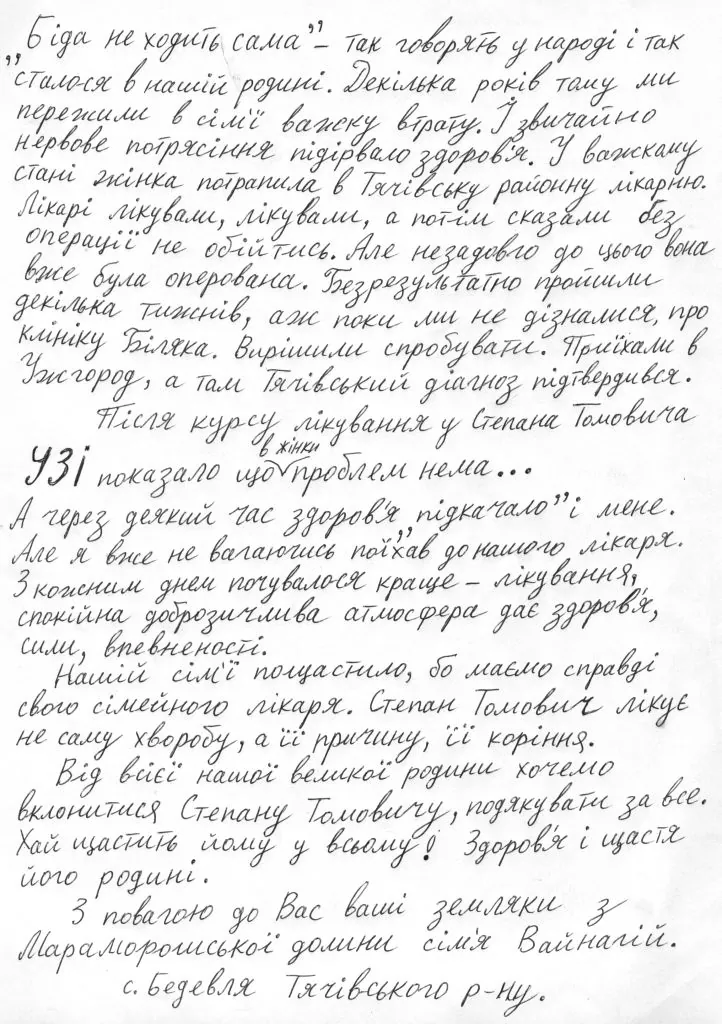 „Біда не ходить сама” – так говорять у народі і так
сталося в нашій родині. Декілька років тому ми
пережили в сім'ї важку втрату. І звичайно
нервове потрясіння підірвало здоров'я. У важкому
стані жінка потрапила в Тячівську районну лікарню.
Лікарі лікували, лікували, а потім сказали без
операції не обійтись. Але незадовго до цього вона
вже була оперована. Безрезультатно пройшли
декілька тижнів, аж поки ми не дізналися, про
клініку Біляка. Вирішили спробувати. Приїхали в
Ужгород, а там Тячівський діагноз підтвердився.
Після курсу лікування у Степана Томовича
УЗІ показало що в жінки проблем нема...
А через деякий час здоров'я „підкачало” і мене.
Але я вже не вагаючись поїхав до нашого лікаря.
З кожним днем почувалося краще – лікування,
спокійна доброзичлива атмосфера дає здоров'я,
сили, впевненості.
Нашій сім'ї пощастило, бо маємо справді
свого сімейного лікаря. Степан Томович лікує
не саму хворобу, а її причину, її коріння.
Від всієї нашої великої родини хочемо
вклонитися Степану Томовичу, подякувати за все.
Хай щастить йому у всьому! Здоров'я і щастя
його родині.
З повагою до Вас ваші земляки з
Мараморошської долини сім'я Вайнагій.
с. Бедевля Тячівського р-ну.